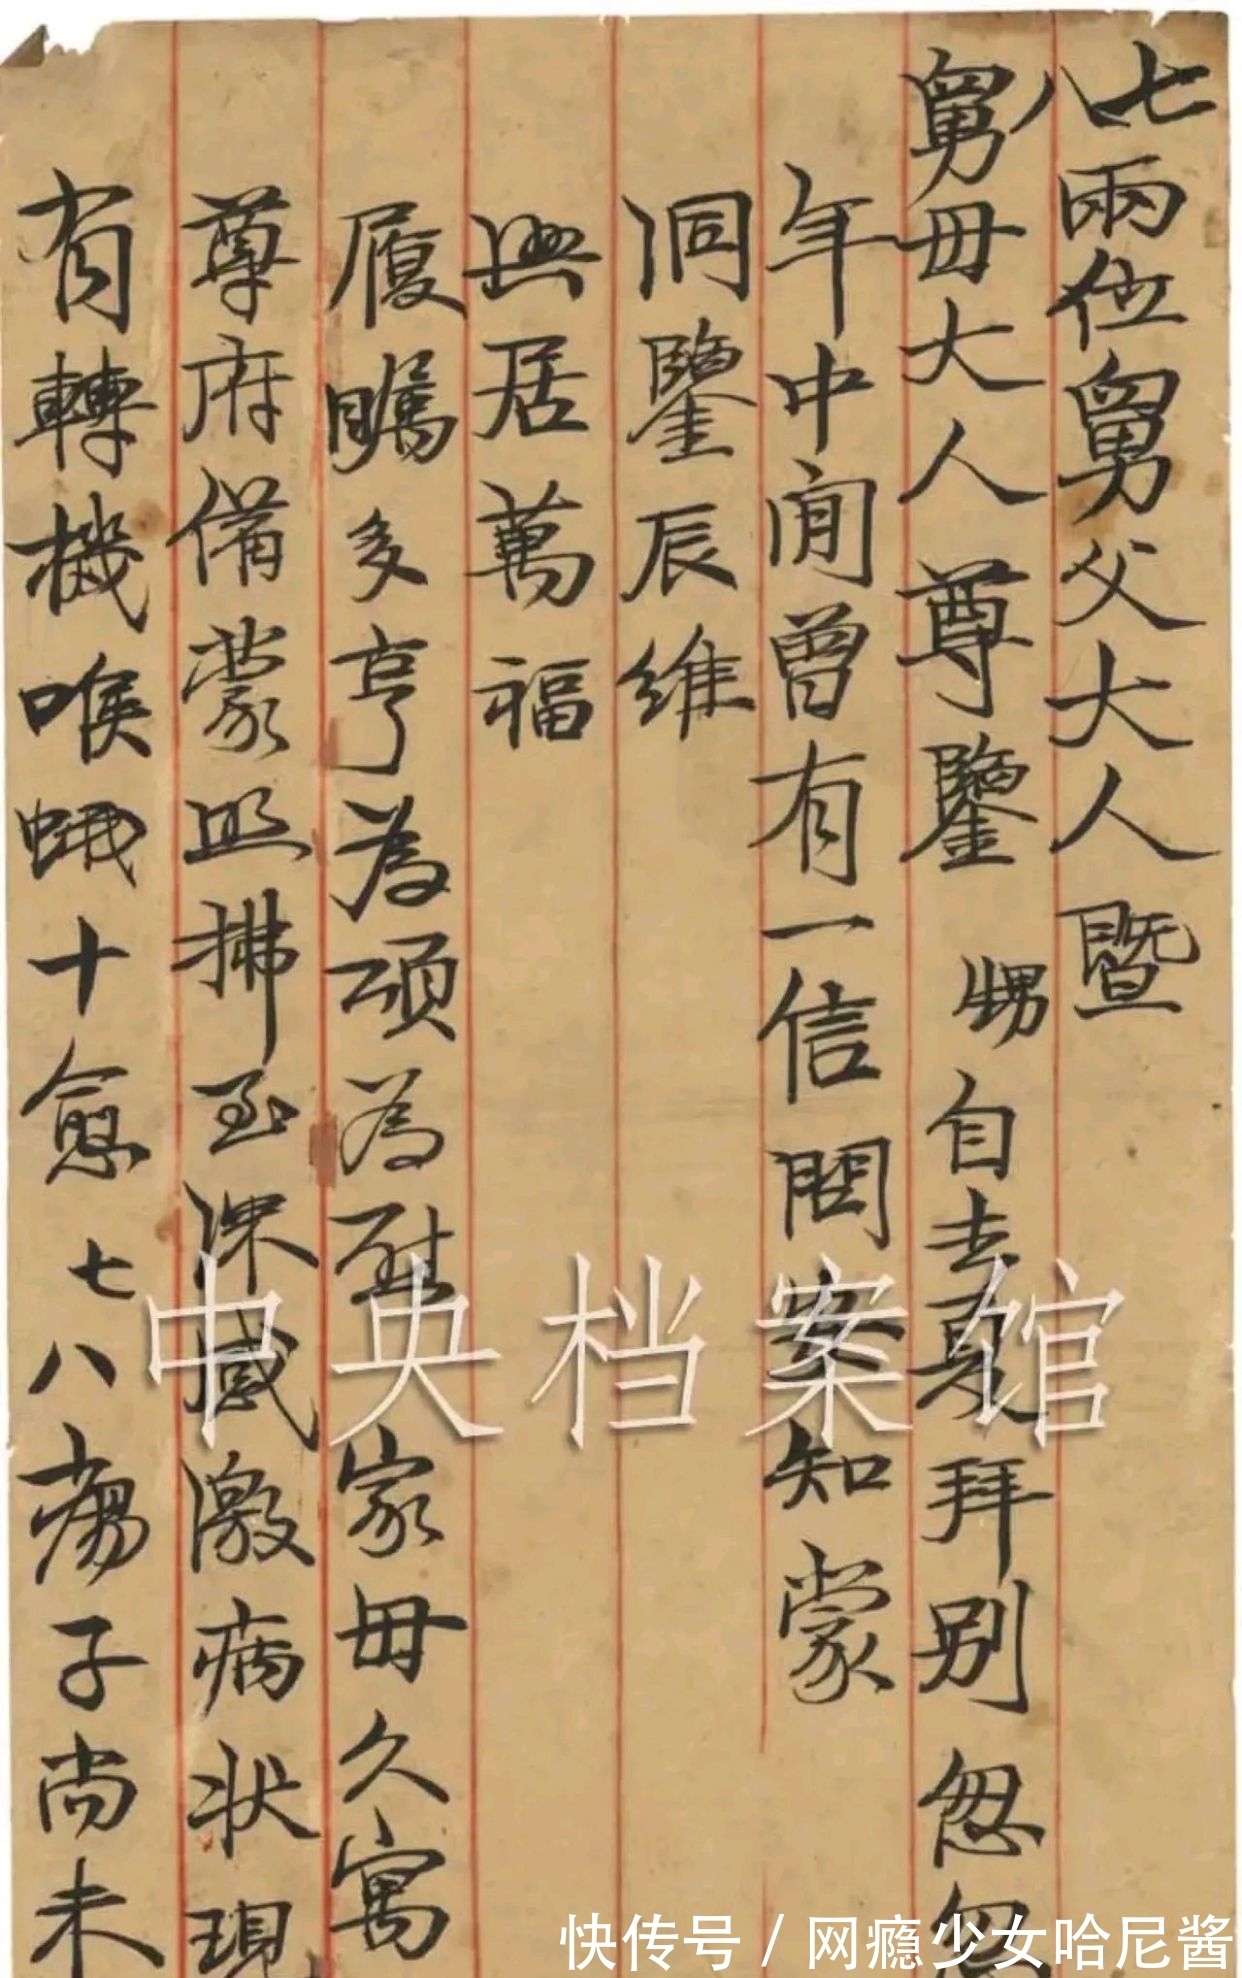 七八兩位舅父大人暨
舅母大人尊鑒 甥自去夏拜別忽忽
年中間曾有一信問安知蒙
洞鑒辰維
興居萬福
履矚多亨為頌為慰 家母久寓
尊府備蒙照拂至深感激病狀現
有轉機喉蛾十愈七八瘍子尚未
中央档案馆
快传号/网瘾少女哈尼酱